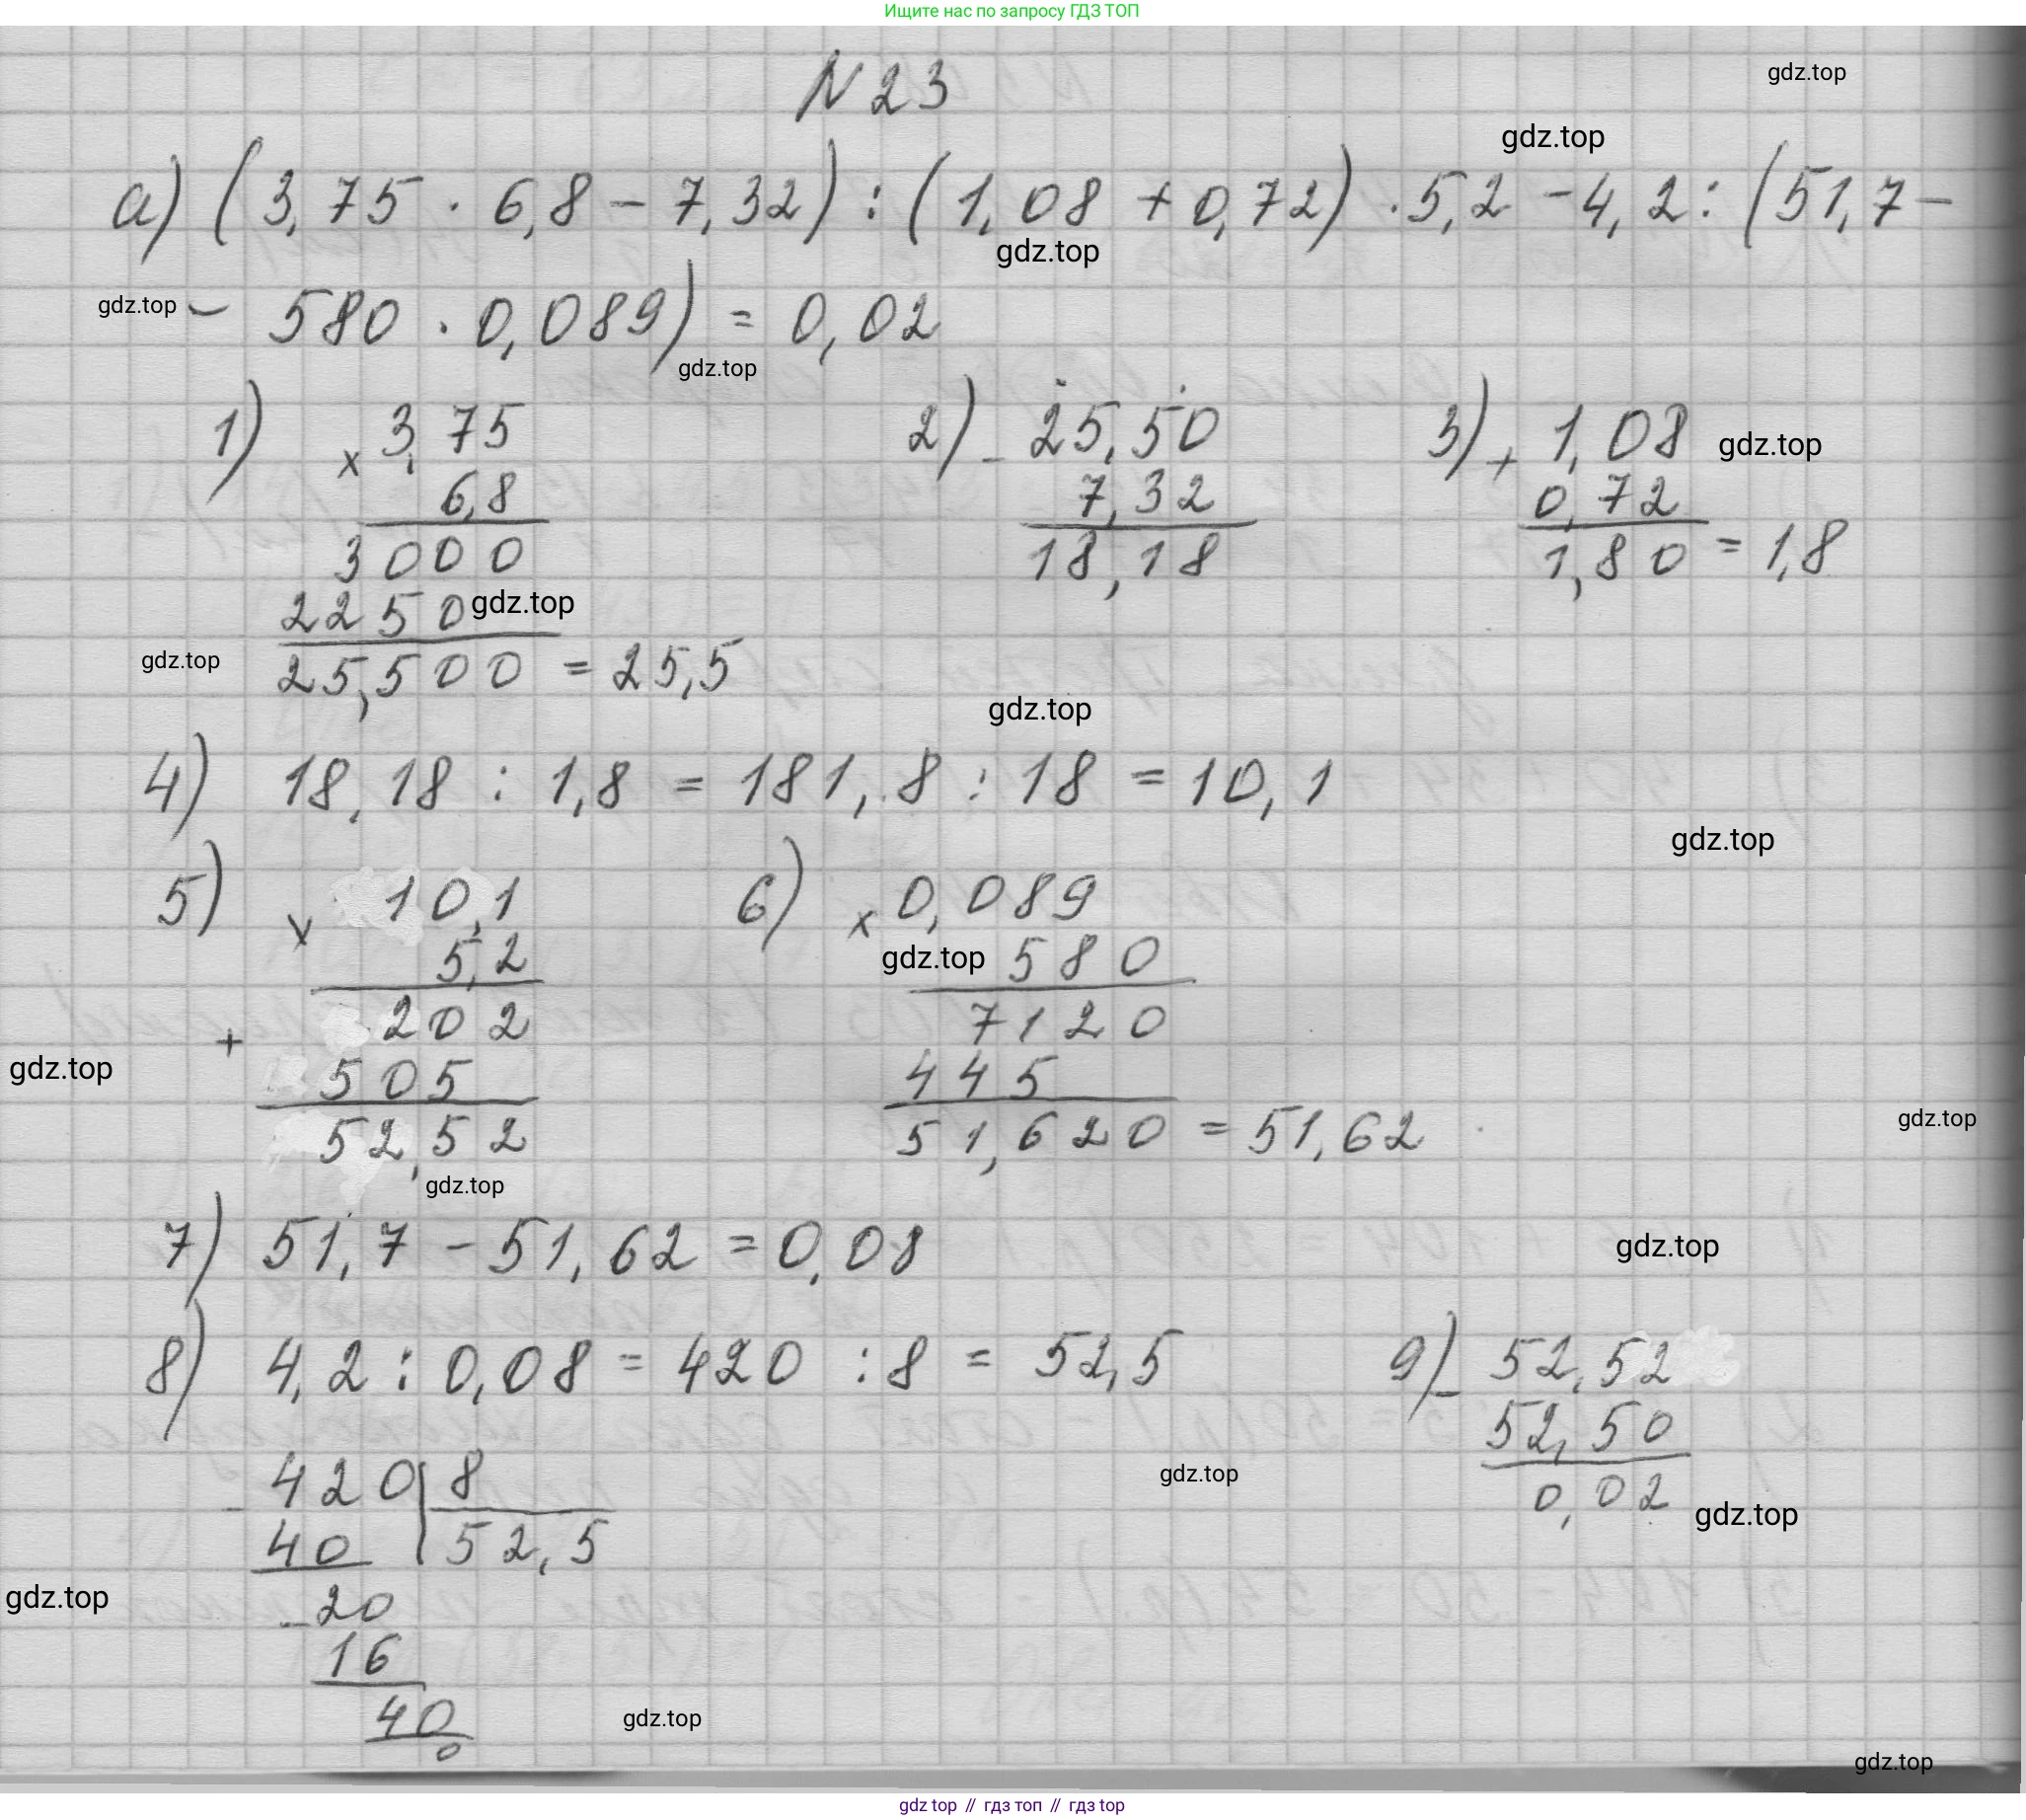 Ищите нас по запросу ГДЗ ТОП
N 23
gdz.top
gdz.top
а) (3,75 · 6,8 − 7,32) : (1,08 + 0,72) · 5,2 − 4,2 : (51,7 −
gdz.top
gdz.top
− 580 · 0,089) = 0,02
gdz.top
1) × 3,75
6,8
3000
2250
25,500 = 25,5
gdz.top
gdz.top
2) − 25,50
7,32
18,18
3) + 1,08
0,72
1,80 = 1,8
gdz.top
gdz.top
4) 18,18 : 1,8 = 181,8 : 18 = 10,1
gdz.top
5) × 10,1
5,2
+ 202
505
52,52
gdz.top
gdz.top
6) × 0,089
580
7120
445
51,620 = 51,62
gdz.top
gdz.top
7) 51,7 − 51,62 = 0,08
gdz.top
8) 4,2 : 0,08 = 420 : 8 = 52,5
− 420 | 8
40 | 52,5
− 20
16
40
0
9) − 52,52
52,50
0,02
gdz.top
gdz.top
gdz.top
gdz.top
gdz.top
gdz top // гдз топ // гдз top